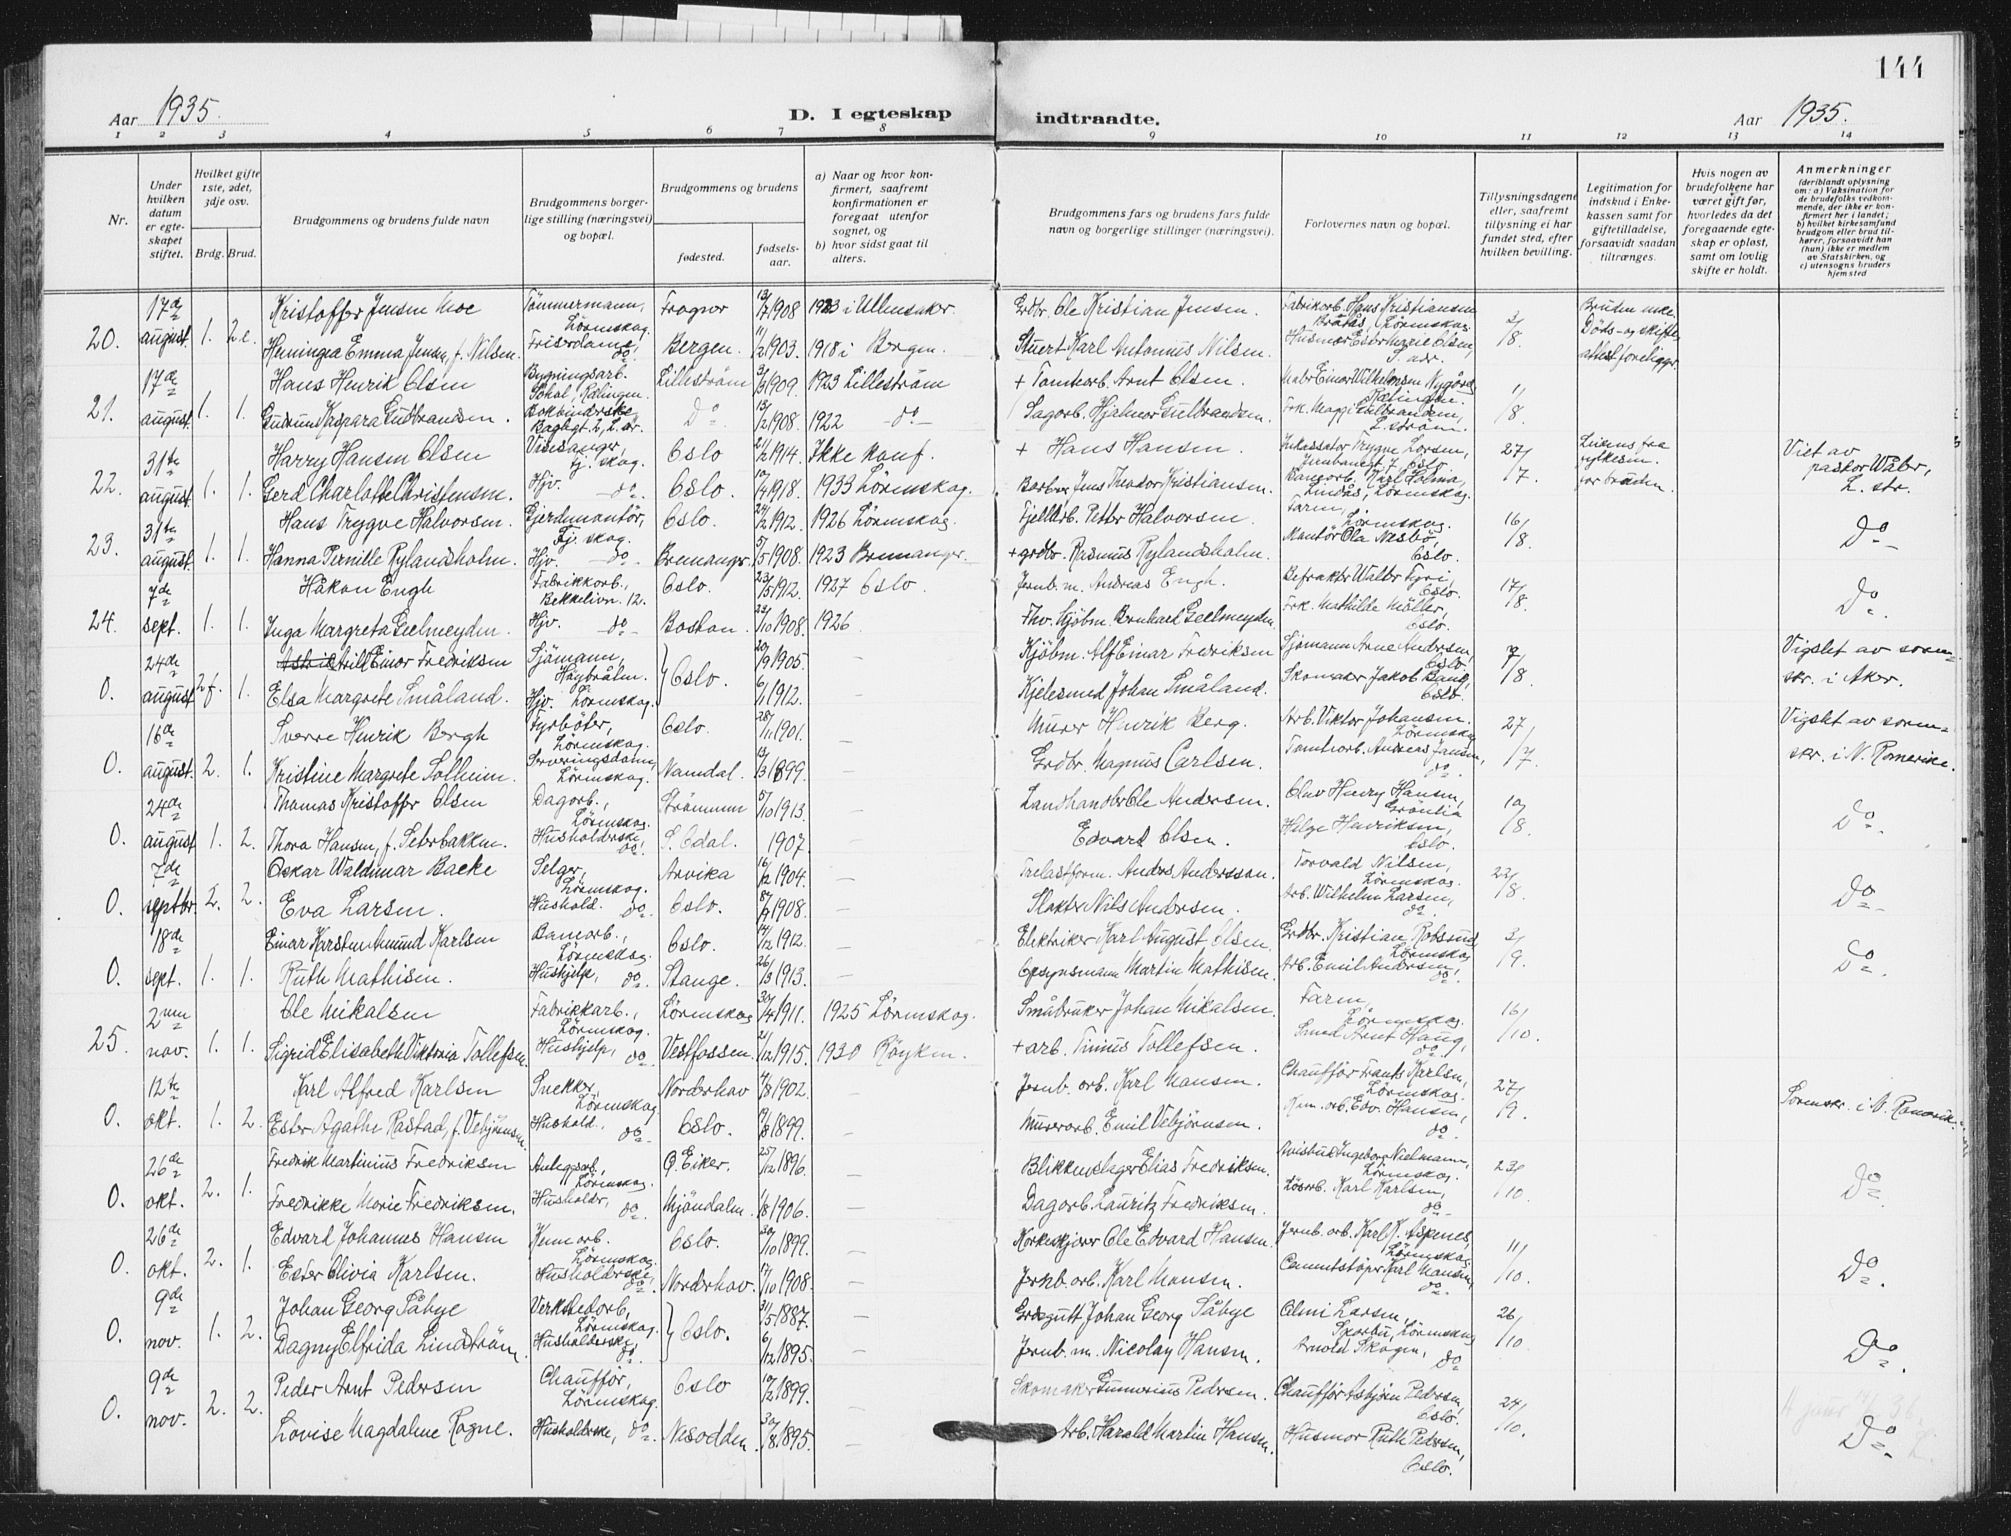 144
Aar 1935.
D. I egteskap indtraadte.
Aar 1935.
1 2 3 4 5 6 7 8 9 10 11 12 13 14
Nr.
Under hvilken datum er egteskapet stiftet.
Hvilket gifte 1ste, 2det, 3dje osv.
Brdg. Brud.
Brudgommens og brudens fulde navn
Brudgommens borgerlige stilling (næringsvei) og bopæl.
Brudgommens og brudens
fødested.
fødselsaar.
a) Naar og hvor konfirmert, saafremt konfirmationen er foregaat utenfor sognet, og
b) hvor sidst gaat til alters.
Brudgommens fars og brudens fars fulde navn og borgerlige stillinger (næringsvei).
Forlovernes navn og bopæl.
Tillysningsdagene eller, saafremt tillysning ei har fundet sted, efter hvilken bevilling.
Legitimation for indskud i Enkekassen samt for giftetilladelse, forsaavidt saadan tiltrænges.
Hvis nogen av brudefolkene har været gift før, hvorledes da det foregaaende egteskap er opløst, samt om lovlig skifte er holdt.
Anmerkninger (deriblandt oplysning om: a) Vaksination for de brudefolks vedkommende, der ikke er konfirmert her i landet; b) hvilket kirkesamfund brudgom eller brud tilhører, forsaavidt han (hun) ikke er medlem av Statskirken, og c) utensogns bruders hjemsted
20. 17de august 1. 2 e.
Kristoffer Jensen Moe Tømmermann, Lörenskog. Frogner 1908 1923 i Ullensaker Grdbr. Ole Kristian Jensen. Fabrikarb. Hans Kristiansen Bråtås, Lörenskog. 2/8. Bruden enke.
Henningea Emma Jensen, f. Nilsen. Friserdame, do Bergen. 11/2 1903. 1918 i Bergen. Stuert Karl Antonius Nilsen. Husmor Ester Marie Olsen, S. adr. Döds- og skifteattest foreligger.
21. 17de august. 1. 1.
Hans Henrik Olsen Bygningsarb. Rælingen. Lilleström 1909. 1923 Lilleström + Tomtearb. Arnt Olsen. Einar Wilhelmsen Nygård Rælingen. 1/8
Gudrun Kaspara Gudbrandsen. Bokbinderske do 1908. 1922 do Sagarb. Hjalmar Gulbrandsen. Frk. Maggi Gulbrandsen, L. ström.
22. 31te august. 1. 1.
Harry Hansen Olsen Visesanger, Fj. skog. Oslo 1914. Ikke konf. + Hans Hansen. Inkassator Trygve Larsen, Jernbanegt. 7 Oslo. 27/7. Lisens fra fylkesm. for bruden. Viet av pastor Wåler, L. str.
Gerd Charlotte Christensen. Hjv. do. Oslo. 1918. 1933 Lörenskog. Jens Theodor Kristiansen. Karl Holma, Lindås, Lörenskog.
23. 31te august. 1. 1.
Hans Trygve Halvorsen. Gjerdemontör, Fj. skog. Oslo. 1912. 1926 Lörenskog. Fjellarb. Petter Halvorsen Farm, Lörenskog. 16/8. Do
Hanna Pernille Rylandsholm. Hjv. do. Bremanger. 5/5 1908. 1923 Bremanger. + grdbr. Rasmus Rylandsholm. Montör Ola Nesbö, Oslo.
24. 7de sept. 1. 1.
Håkon Engh Fabrikkarb., Bekkelivn. 12. Oslo. 23/5 1912. 1927 Oslo. Jernb. m. Andreas Engh. Befrakter Walter Fyri, Oslo. 17/8. Do.
Inga Margreta Geelmeyden. Hjv. do Boston. 23/10 1908. 1926 Fhv. kjöbm. Bernhard Geelmeyden. Frk. Mathilde Möller, Oslo.
0. 24de august 2 f. 1.
Arill Einar Fredriksen Sjömann, Höybråtn. Oslo. 20/9 1905. – Kjöbm. Alf Einar Fredriksen Sjömann Arne Andersen, Oslo. 7/8 Vigslet av sorenskr. i Aker.
Elsa Margrete Småland. Hjv. Lörenskog. 6/1 1912. – Kjelesmed Johan Småland. Skomaker Jakob Bang, Oslo.
0. 16de august. 2. 1.
Sverre Henrik Bergh Fyrböter, Lörenskog. Oslo. 28/11 1901. – Murer Henrik Berg. Arb. Viktor Johansen. Lörenskog 27/7. Vigslet av sorenskr. i N. Romerike.
Kristine Margrete Solheim. Serveringsdame, Lörenskog. Namdal. 13/3 1899. – Grdbr. Magnus Carlsen. Tomtearb. Andreas Jansen, do.
0. 24de august 1. 2.
Thomas Kristoffer Olsen Dagarb., Lörenskog. Strömmen 5/10 1913. – Landhandler Ole Andersen. Olav Henry Hansen, Grönlia 10/8. Do.
Thora Hansen, f. Seterbakken. Husholderske, do. S. Odal. 1907. – Edvard Olsen. Helge Henriksen, Oslo.
0. 7de septbr. 2. 2.
Oskar Waldemar Backe Selger, Lörenskog. Arvika 16/12 1904. – Trelastform. Anders Andersson. Torvald Nilsen, Lörenskog. 22/8 Do
Eva Larsen. Hushold. do. Oslo. 1908. – Slakter Nils Andersen. Arb. Wilhelm Larsen, do
0. 18de sept. 1. 1.
Einar Karsten Amund Karlsen Banearb., Lörenskog. Oslo. 14/12 1912. – Elektriker Karl August Olsen. Grdbr. Kristian Robsrud Lörenskog 3/9. Do.
Ruth Mathisen. Hushjelp, do. Stange. 26/3 1913. – Opsynsmann Martin Mathisen. Arb. Emil Andersen, do.
25. 2nn nov. 1. 1.
Ole Mikalsen Fabrikkarb., Lörenskog. Lörenskog 30/4 1911. 1925 Lörenskog. Småbruker Johan Mikalsen. Farm, Lörenskog. 16/10.
Sigrid Elisabeth Viktoria Tollefsen. Hushjelp, do. Vestfossen. 21/12 1915. 1930 Röyken. + arb. Tinius Tollefsen. Smed Arnt Haug, do.
0. 12te okt. 1. 2.
Karl Alfred Karlsen Snekker, Lörenskog Norderhov 1902. – Jernb. arb. Karl Hansen. Chauffør Frants Karlsen, Lörenskog. 27/9. Sorenskr. i N. Romerike.
Ester Agathe Rastad, f. Vebjörnsen. Hushold. do. Oslo. 1899. – Murerarb. Emil Vebjörnsen. Edv. Hansen, do.
0. 26de okt. 2. 1.
Fredrik Martinius Fredriksen Anlegsarb., Lörenskog. Ö. Eiker. 25/12 1896. – Blikkenslager Elias Fredriksen. Ingeborg Nielmann, Lörenskog. 23/10. Do.
Fredrikke Marie Fredriksen. Husholdr, do. Mjöndalen. 1/8 1906. – Dagarb. Lauritz Fredriksen. Karl Karlsen, do
0. 26de okt. 2. 1.
Edvard Johannes Hansen Kem. arb. Lörenskog. Oslo. 30/10 1899. – Korkeskjærer Ole Edvard Hansen. Jernb. arb. Karl K. Aspenes, Lörenskog 11/10. Do.
Ester Olivia Karlsen. Husholderske, do. Norderhov. 17/10 1908. – Jernb. arb. Karl Hansen. Cementstöper Karl Hansen, do.
0. 9de nov. 1. 2.
Johan Georg Såbye Verkstedarb., Lörenskog. Oslo. 31/5 1887. – Johan Georg Såbye Olmi Larsen, Skarbu, Lörenskog 26/10 Do.
Dagny Elfrida Lindström. Husholderske, do. 6/12 1895. – Jernb. m. Nicolay Hansen. Arnold Skogen, do
0. 9de nov. 2. 2.
Peder Arnt Pedersen Chauffør, Lörenskog. Oslo 1899. – Skomaker Gunnerius Pedersen. Chauffør Asbjørn Pedersen, Oslo. 24/10. Do
Lovise Magdalene Rogne. Husholderske, do. Nesodden. 30/8 1895. – Arb. Harald Martin Hansen. Husmor Ruth Pedersen, Oslo.